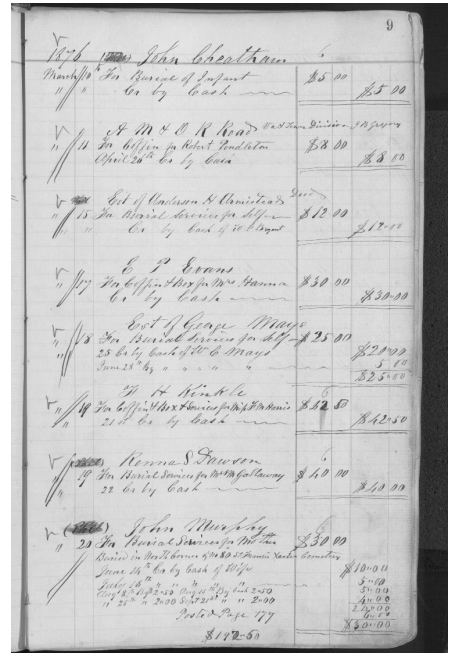 9
1876 John Cheatham
March 10th For Burial of Infant $5 00
" " Cr by Cash $5 00
A M & O R Road Division
" 11 For Coffin for Robert Pendleton $8 00
April 26th Cr by Cash $8 00
Est of Anderson H Armistead Decd
" 15 For Burial Services for Self $12 00
" " Cr by Cash of $12-00
E P Evans
" 17 For Coffin & Box for Mrs Hanna $30 00
Cr by Cash $30-00
Est of George Mays
" 18 For Burial Services for Self $25 00
25 Cr by Cash of W C Mays $20-00
June 28th By " " " " 5 00
$25-00
H Kinkle
" 19 For Coffin & Box & Services for $42 50
21 Cr by Cash $42-50
Renna S Dawson
" 19 For Burial Services for Mr Gallaway $40 00
22 Cr by Cash $40-00
John Murphy
" 20 For Burial Services for Mother $30 00
Buried in North Corner of St Francis Xavier Cemetery
June 14th Cr by Cash of Wife $10-00
July 15th " " " " 5-00
Augt 8th 2-50 Aug 15th By Cash 2-50 5-00
" 25th " 2-00 Sept " " 2-00 4-00
Posted Page 177
$30-00
$192-50